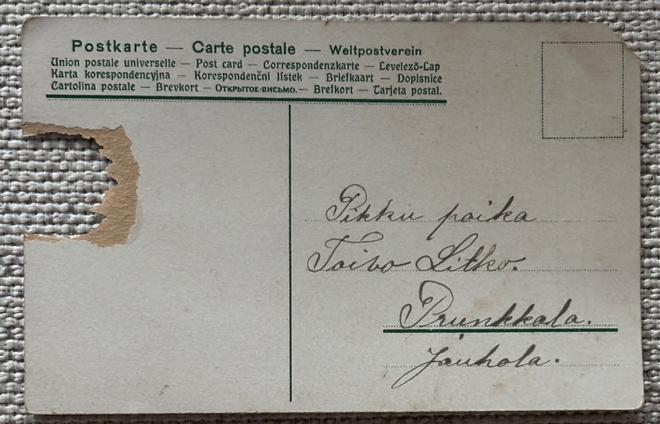 Postkarte — Carte postale — Weltpostverein
Union postale universelle — Post card — Correspondenzkarte — Levelező-Lap
Karta korespondencyjna — Korespondenční lístek — Briefkaart — Dopisnice
Cartolina postale — Brevkort — Открытое-письмо. — Brefkort — Tarjeta postal.
Pikku poika
Toivo Litko.
Prunkkala.
Jauhola.